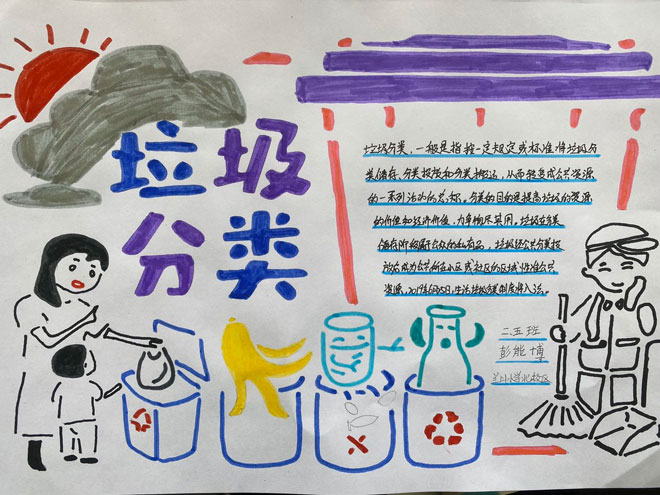 垃圾
分类
垃圾分类，一般是指按一定规定或标准将垃圾分
类储存、分类投放和分类搬运，从而转变成公共资源
的一系列活动的总称。分类的目的是提高垃圾的资源
的价值和经济价值，力争物尽其用。垃圾在分类
储存阶段属于公众的私有品，垃圾经公众分类投
放后成为公众所在小区或社区的区域性准公共
资源，生活垃圾分类制度将入法。
二.五班
彭能博